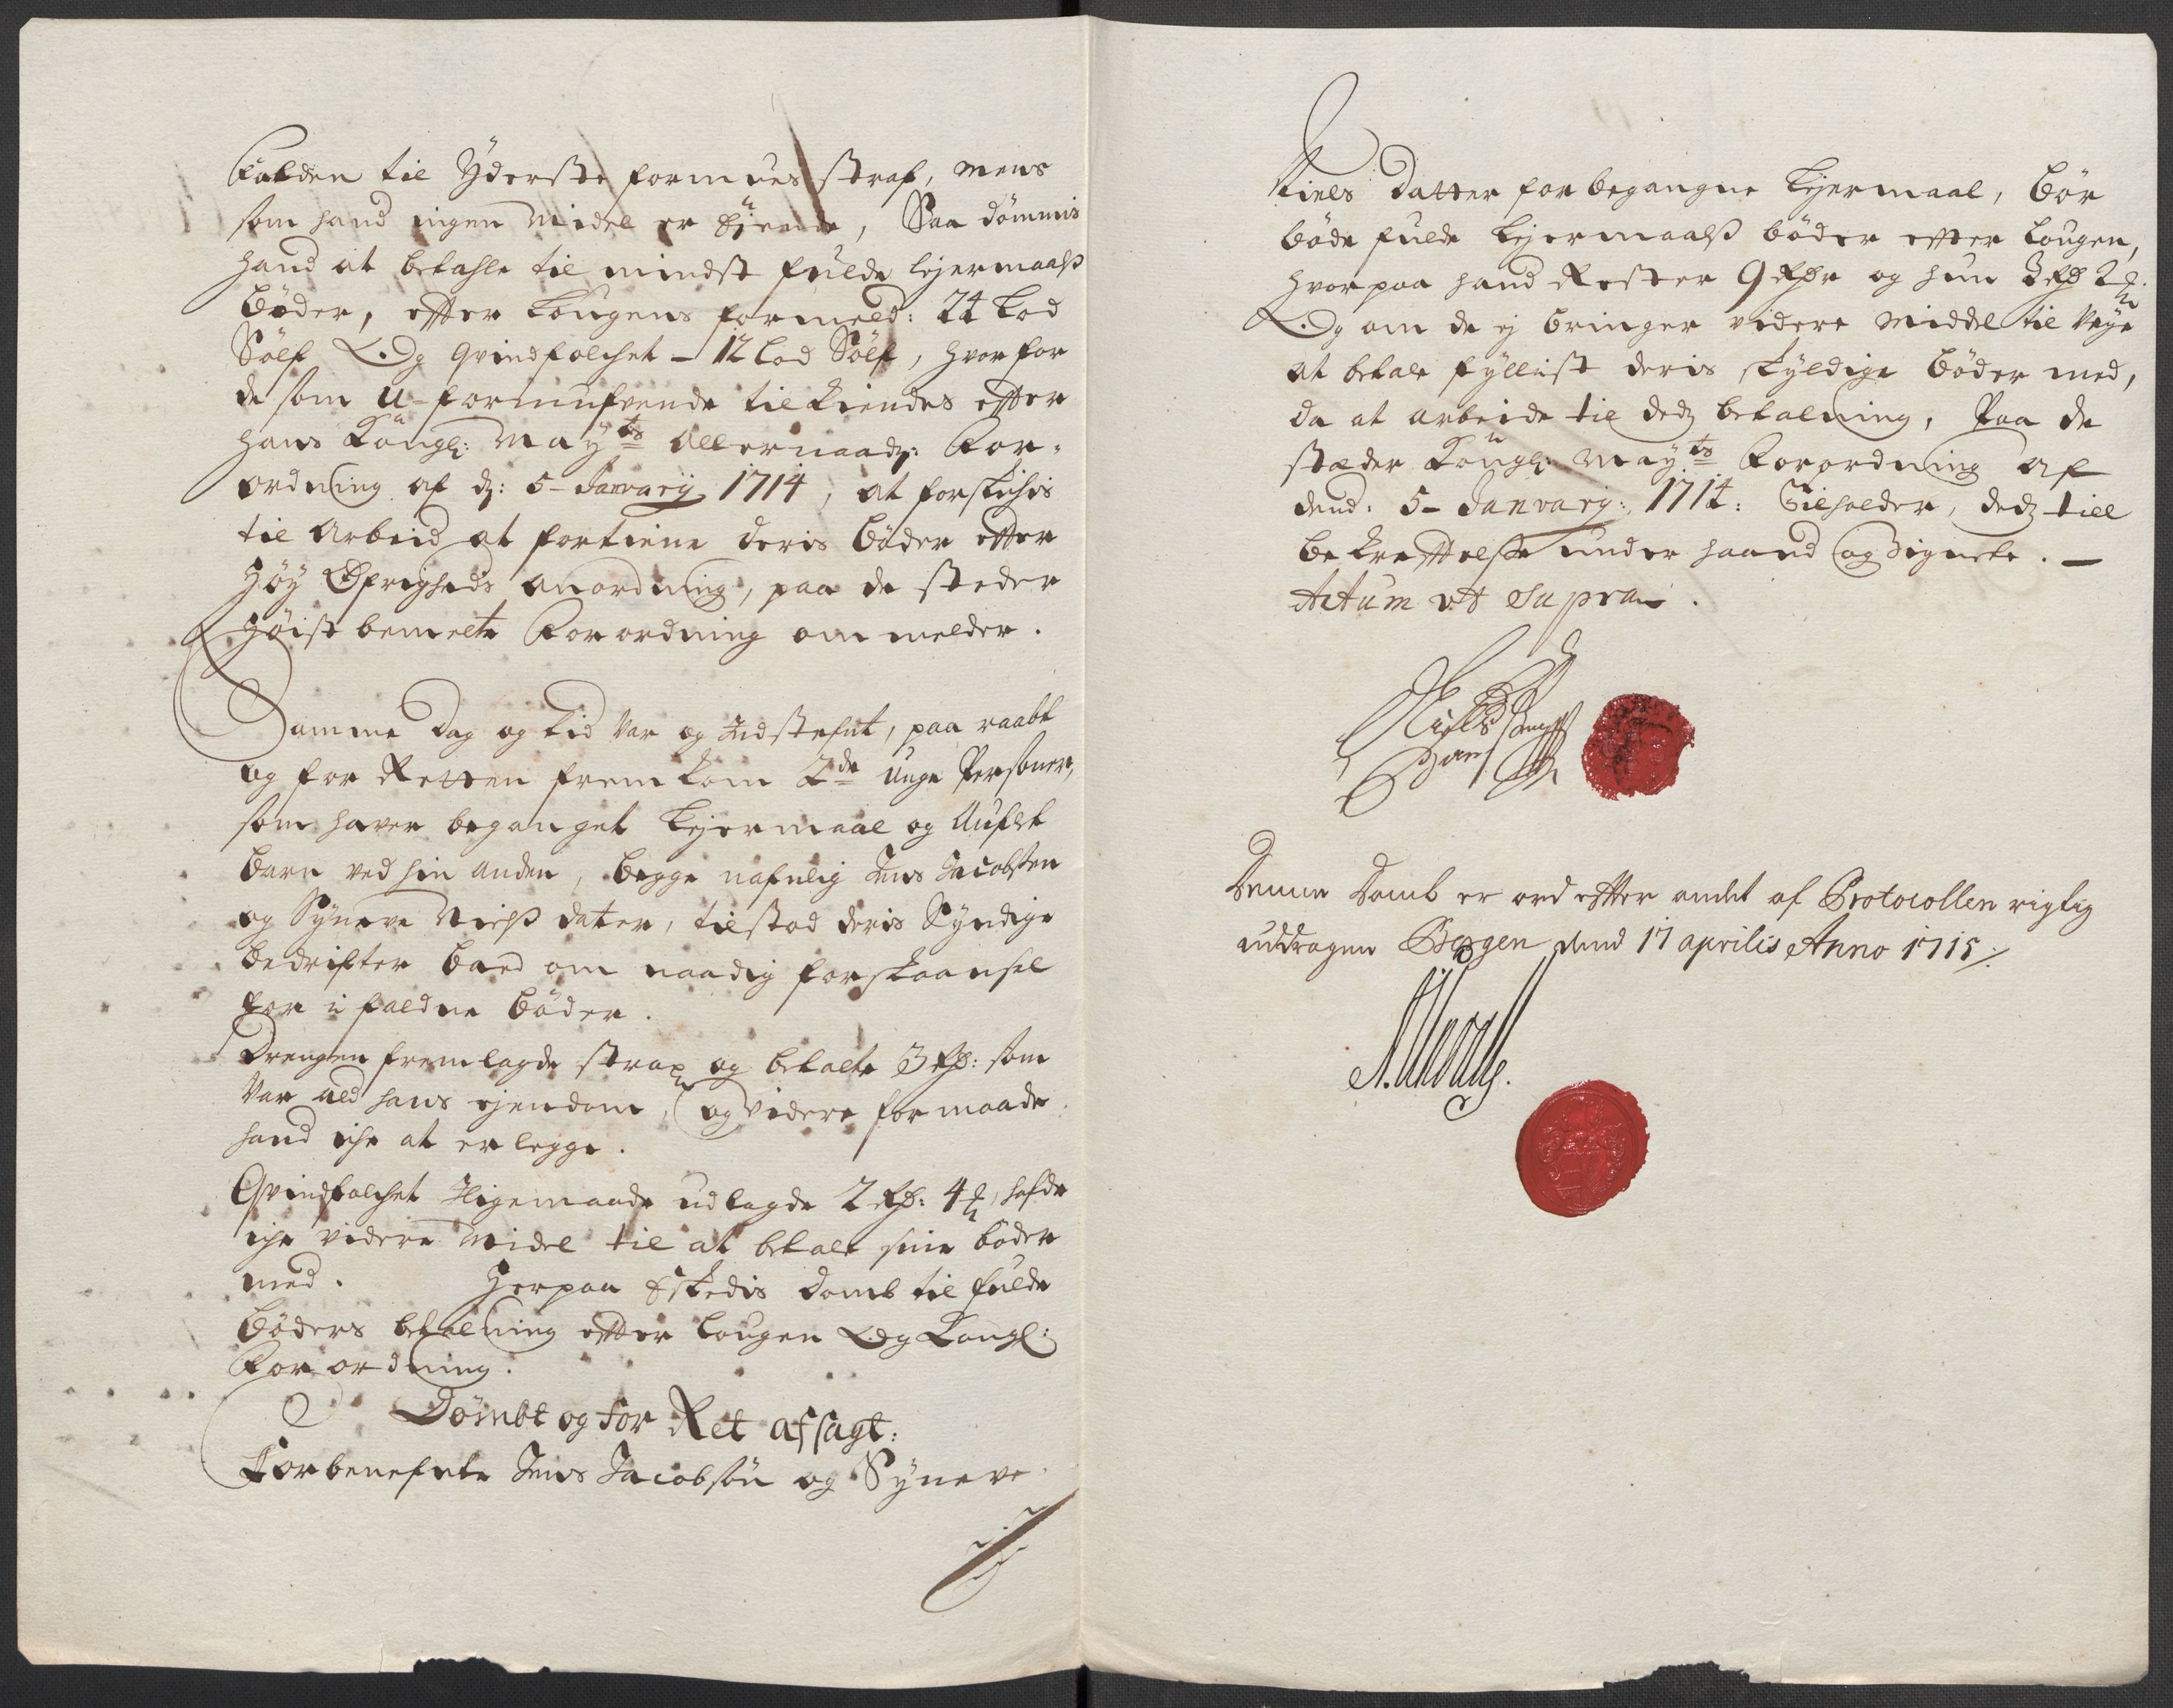 falden til Yderste formues straf, mens
som hand ingen Midel er Ejende, Saa dömmis
hand at betahle til mindst fulde lejermaals
böder, efter Lougens formeld: 24 Lod
Sölf Og Qvindfolchet – 12 Lod Sölf, hvorfor
de som U-formufvende tilkiendes efter
hans Kongl: Mayts Allernaadg: For-
ordning af d: 5 – January 1714, at forskichis
til Arbeid at fortiene deris böder efter
Höy Öfrigheds anordning, paa de steder
Höist bemelte Forordning om melder.
Samme Dag og tid var og Indstefnt, paa raabt
og for Retten fremkom 2de Unge Personer,
som haver beganget Lejermaal og Auflet
barn ved hin anden, begge nafnlig Jens Jacobsen
og Synneve Nielss dater, tilstod deris Syndige
bedrifter baed om naadig forskaansel
for i faldne böder.
Drengen fremlagde strax og betalte 3 Rdr: som
var ald hans ejendom, og videre formaade
hand iche at erlegge.
Qvindfolchet Iligemaade udlagde 2 Rdr: 4 , hafde
iche videre Midel til at betale sine böder
med. Herpaa Eskedis domb til fulde
böders betalning efter Lougen Og Kongl:
Forordning.
Dömbt og for Ret afsagt:
Forbenefnte Jens Jacobsön og Syneve
Niels datter for begangne Lejermaal, bör
böde fulde Lejermaalss böder efter Lougen,
hvorpaa hand Rester 9 Rdr og hun 3 Rdr 2
Og om de ej bringer videre Middel til Veye
at betale fyllist deris skyldige böder med,
da at arbeide til dedz betalning, Paa de
stæder Kongl: Mayts Forordning af
dend: 5 – January: 1714: Tilholder, dedz till
bekreftelsse under haand og Signete. –
Actum ut Supra.
Denne Domb er ord efter andet af Protocollen rigtig
uddragen Bergen dend 17 aprilis Anno 1715